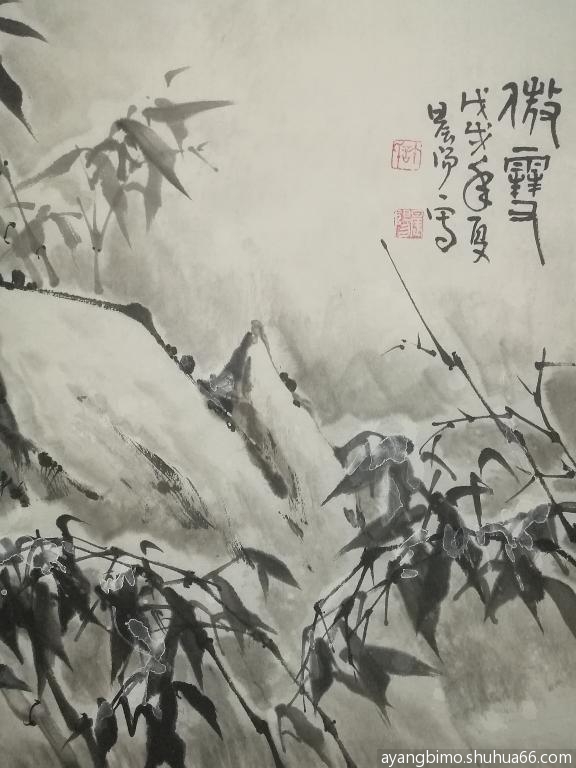 微雪
戊戌年夏
晨阳写
ayangbimo.shuhua66.com